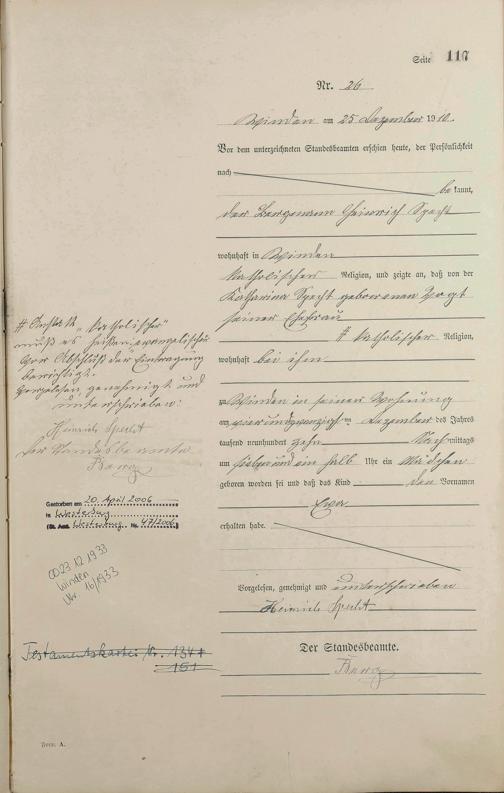 Seite 116
Nr. 26
Winden am 25 Dezember 1910.
Vor dem unterzeichneten Standesbeamten erschien heute, der Persönlichkeit
nach
be kannt,
der Bergmann Heinrich Specht
wohnhaft in Winden
katholischer Religion, und zeigte an, daß von der
Katharina Specht geborenen Vogt
seiner Ehefrau
# katholischer Religion,
wohnhaft bei ihm
zu Winden in seiner Wohnung
am vierundzwanzigsten Dezember des Jahres
tausend neunhundert zehn Nach mittags
um sieben und ein halb Uhr ein Mädchen
geboren worden sei und daß das Kind den Vornamen
Eva
erhalten habe.
Vorgelesen, genehmigt und unterschrieben
Heinrich Specht
Der Standesbeamte.
# Anstatt „katholischer"
muß es heißen evangelischer
Vor Abschluß der Eintragung
berichtigt.
Vorgelesen, genehmigt und
unterschrieben:
Heinrich Specht
Der Standesbeamte
Gestorben am 20. April 2006
in Westerburg
(St. Amt Westerburg Nr. 47/2006)
23.12.1933
Winden
Nr. 16/1933
Testamentskartei Nr. 134
151
Form. A.